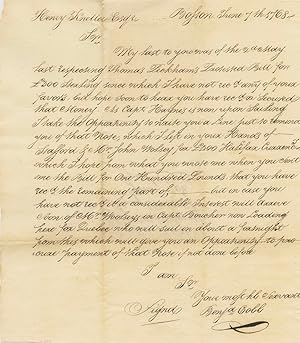 Henry Boston June 7th 1768
Sir
My last to you was of the 2d May
last Respecting Thomas Bill for
£300 Sterling since which I have not rec'd any of your
favors but hope soon to hear you have rec'd & Secured
that Money. As Capt is now upon Sailing
I take the Oppertunity to write you a Line just to remind
you of that Note, which I left in your Hands of
Stafford & Mr John Wooley for £200 Halifax
which I hope from what you wrote me when you sent
me the Bill for One Hundred Pounds that you have
rec'd the remaining part of but in case you
have not rec'd it a considerable Interest will
of Mr Wooleys in Capt now Loading
here for Quebec who will sail in about a fortnight
from this which will give you an Oppertunity to
payment of that Note if not done before
I am
Sir
Your Servant
Signd Benja Cobb